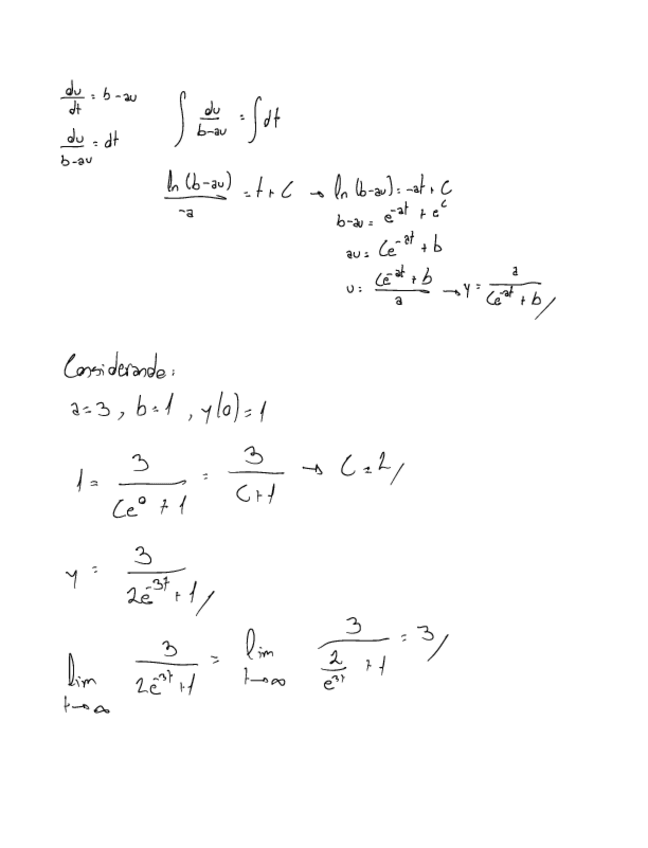 du/dt = b - au
∫ du/(b-au) = ∫ dt
du/(b-au) = dt
ln (b-au)/-a = t + C → ln (b-au) = -at + C
b-au = e^-at + e^c
au = Ce^-at + b
u = (Ce^-at + b)/a → y = a/(Ce^-at + b) /
Considerando:
a=3, b=1, y(0)=1
1 = 3/(Ce^0 + 1) = 3/(C+1) → C=2 /
y = 3/(2e^-3t + 1) /
lim t→∞ 3/(2e^-3t + 1) = lim t→∞ 3/(2/e^3t + 1) = 3 /